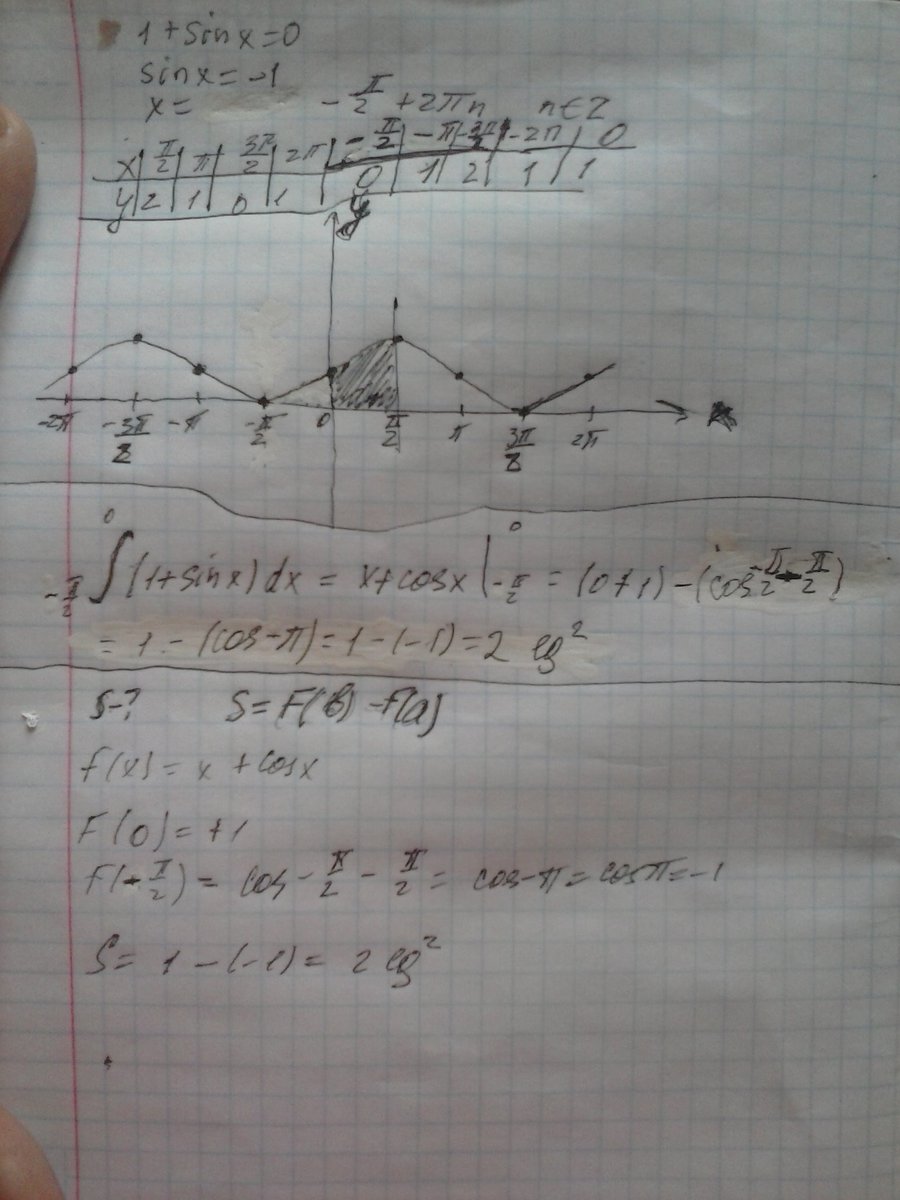 1 + sin x = 0
sin x = -1
x = - π/2 + 2πn n ∈ Z
x | π/2 | π | 3π/2 | 2π | - π/2 | -π | - 3π/2 | -2π | 0
y | 2 | 1 | 0 | 1 | 0 | 1 | 2 | 1 | 1
y
-2π - 3π/2 -π - π/2 0 π/2 π 3π/2 2π x
∫_{-π/2}^{0} (1 + sin x) dx = x + cos x |_{-π/2}^{0} = (0 + 1) - (cos - π/2 - π/2)
= 1 - (cos - π) = 1 - (-1) = 2 eg²
S-? S = F(b) - f(a)
f(x) = x + cos x
F(0) = +1
f(- π/2) = cos - π/2 - π/2 = cos - π = cos π = -1
S = 1 - (-1) = 2 eg²